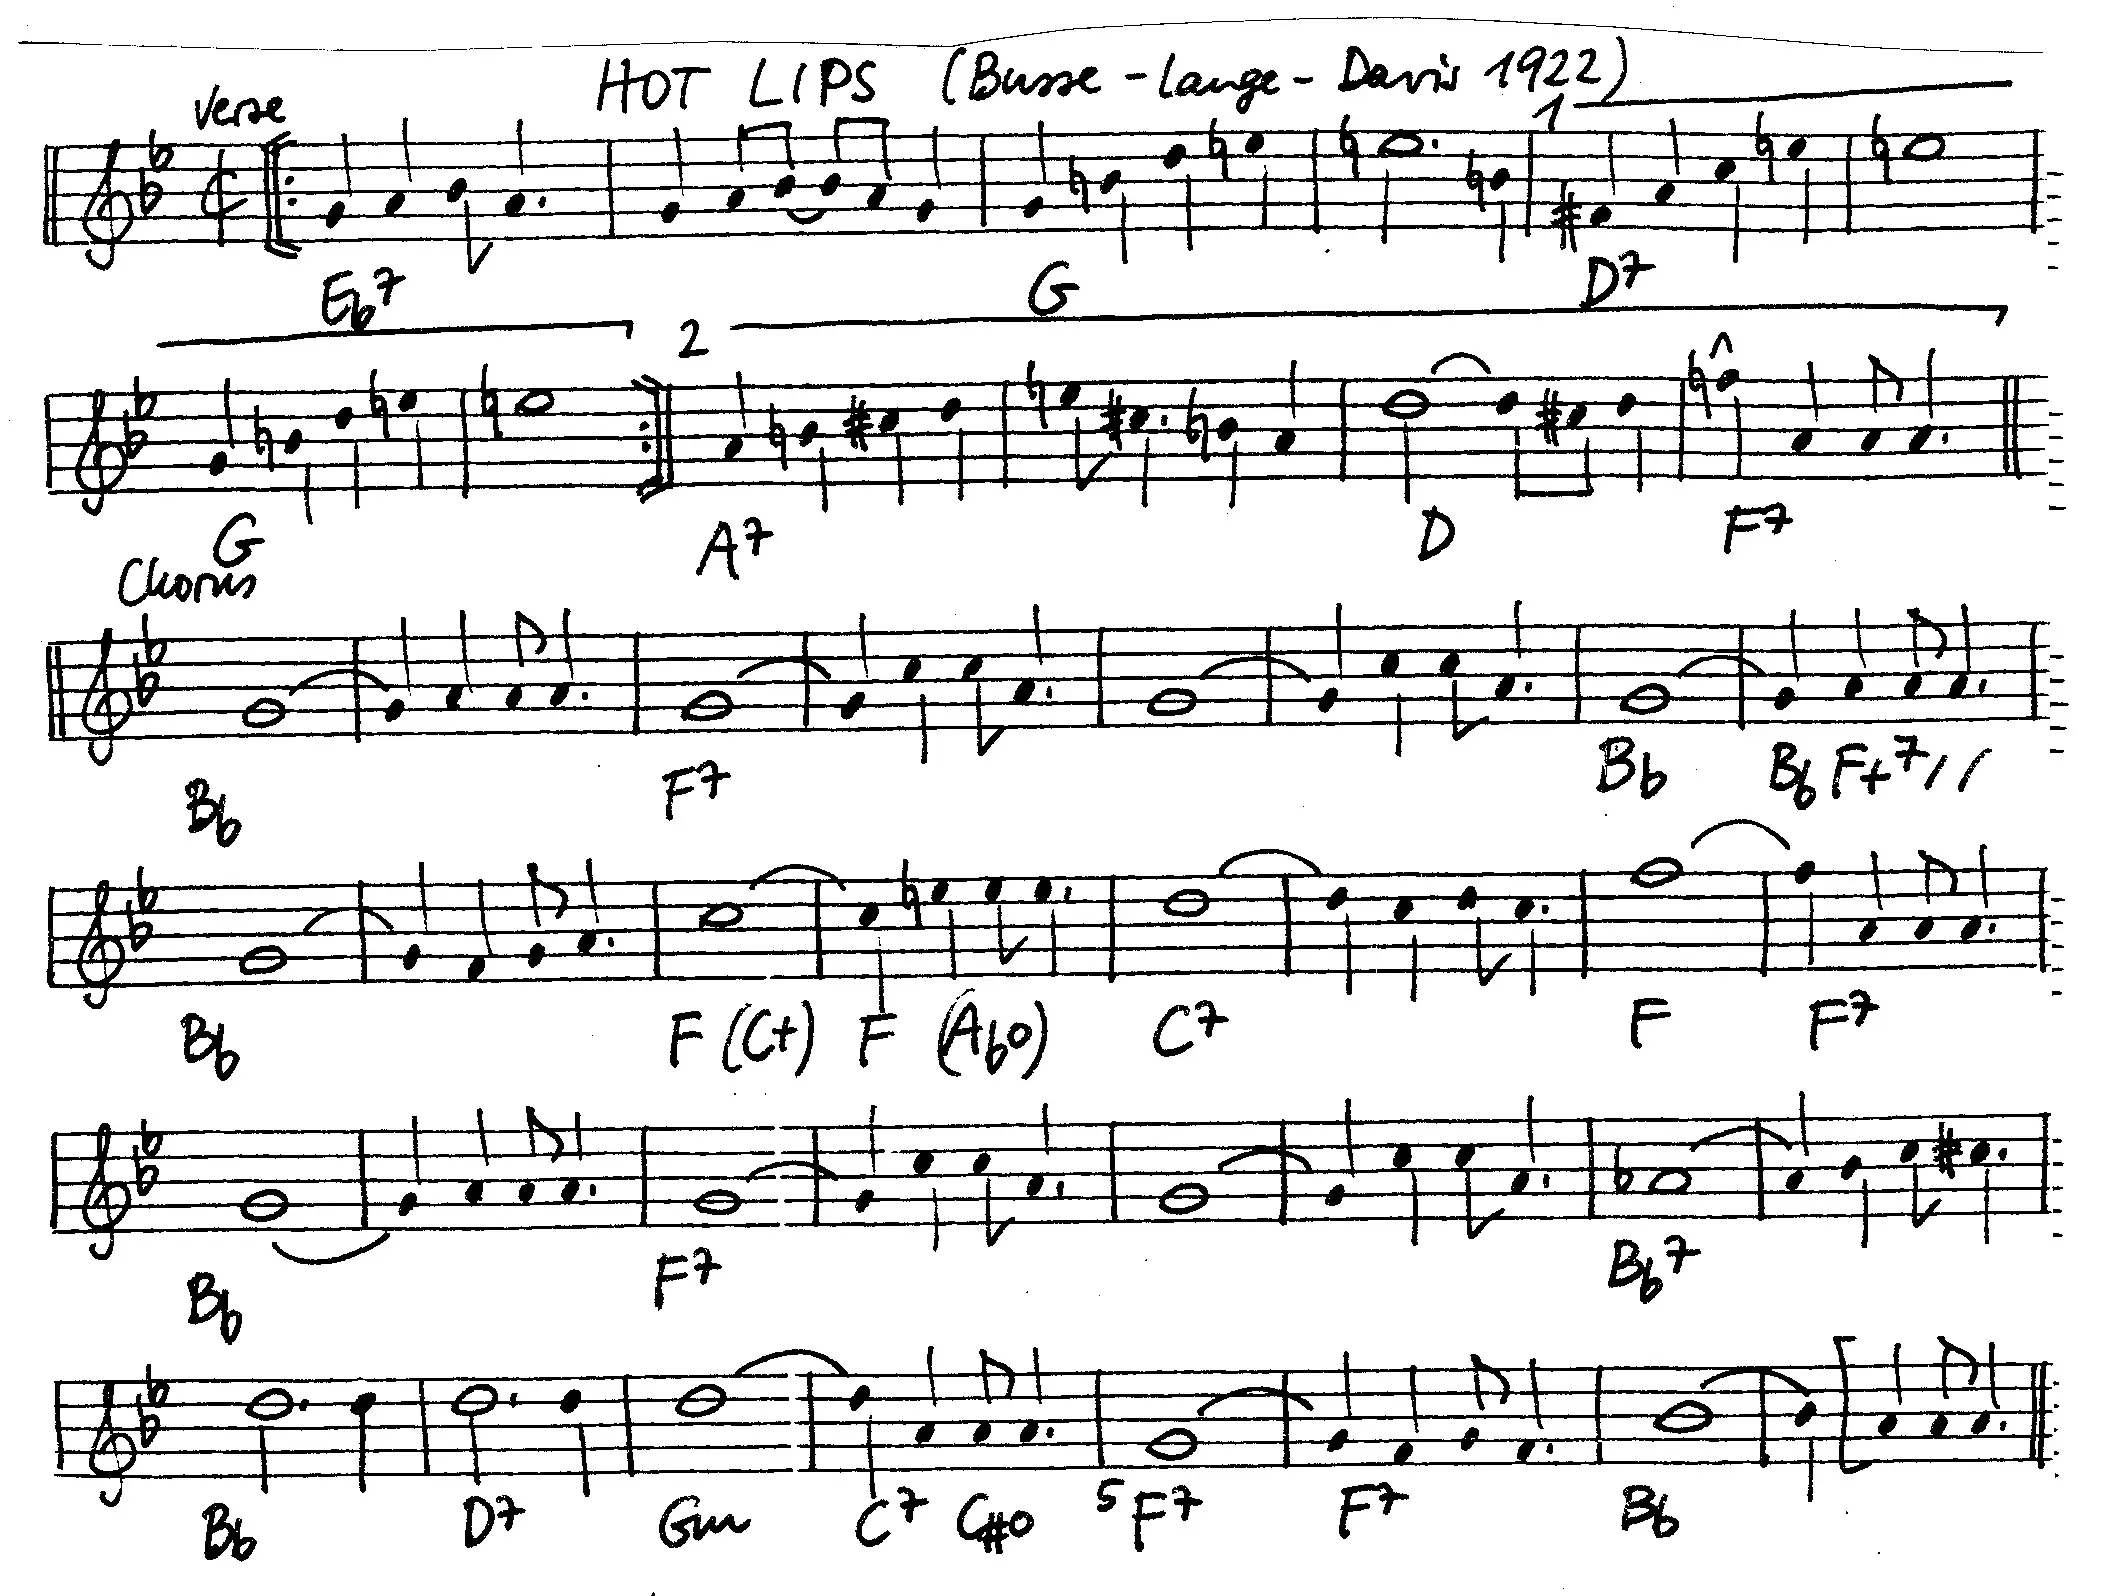 HOT LIPS (Busse - Lange - Davis 1922)
Verse
1
Eb7 G D7
2
G A7 D F7
Chorus
Bb F7 Bb Bb F+7 / /
Bb F (C+) F (Abo) C7 F F7
Bb F7 Bb7
Bb D7 Gm C7 C#o 5 F7 F7 Bb